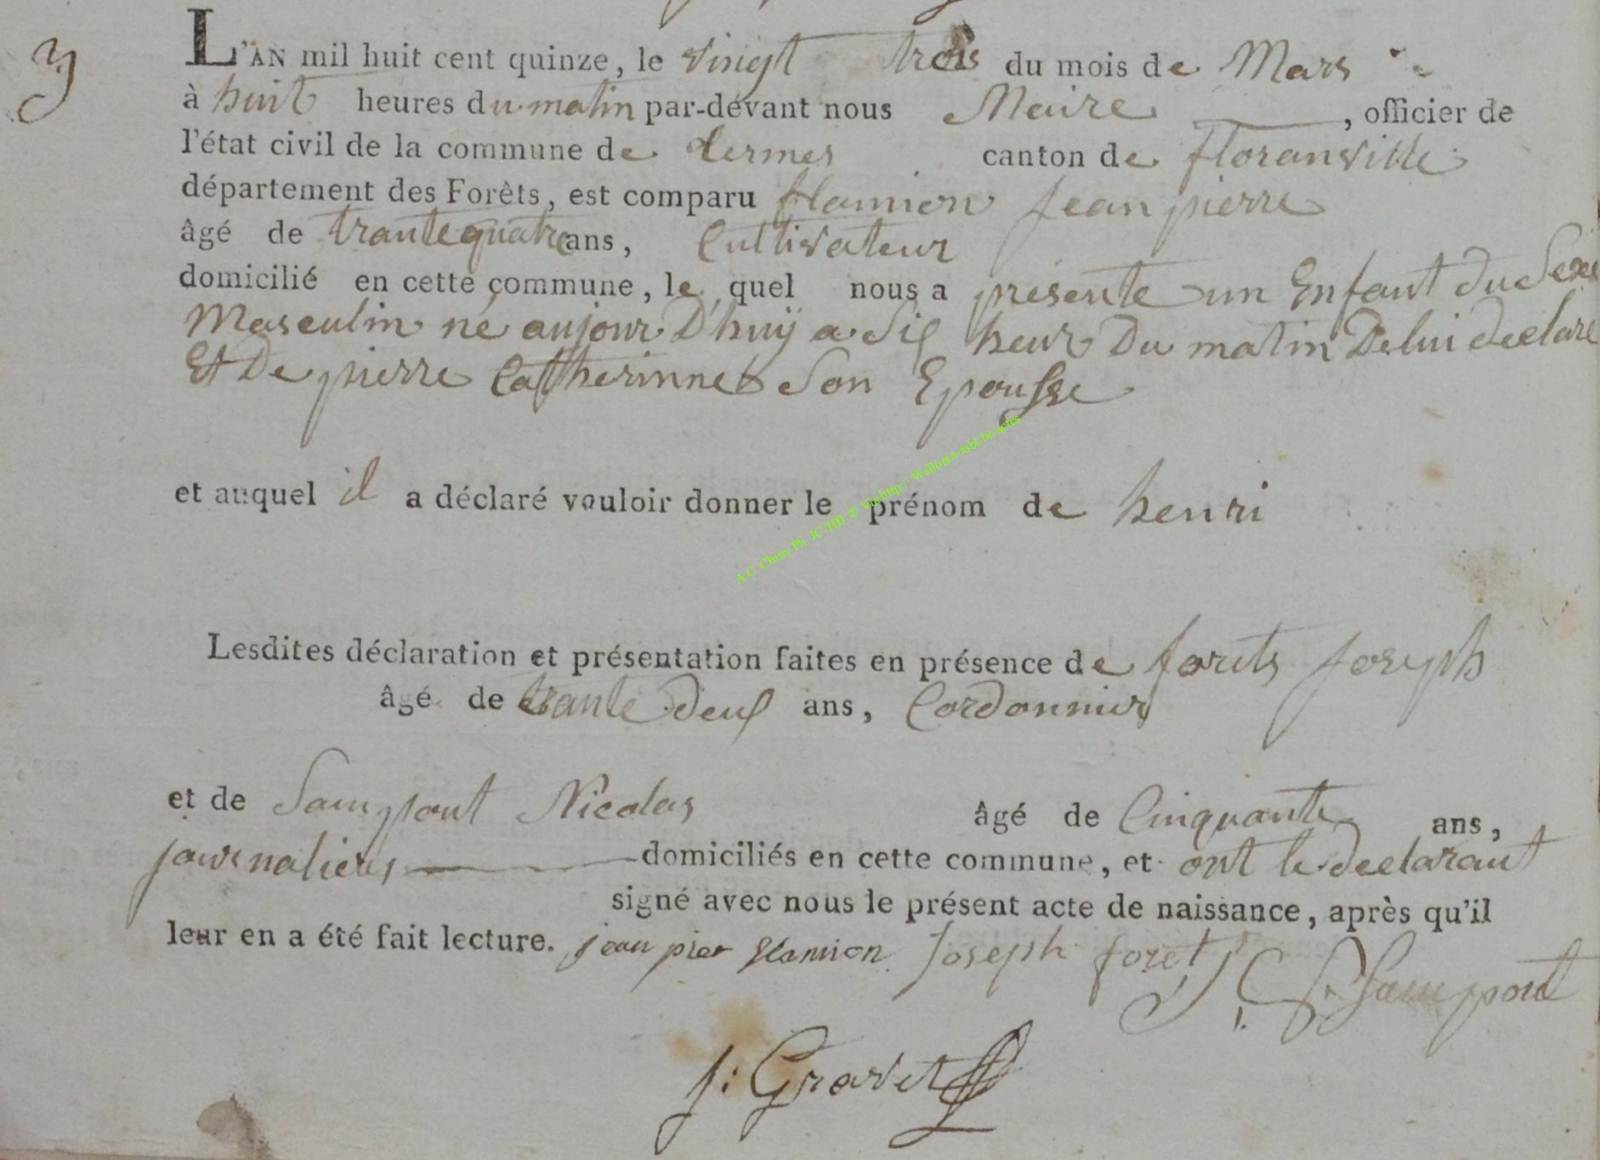 3
L'AN mil huit cent quinze, le vingt trois du mois de Mars
à huit heures du matin par-devant nous Maire, officier de
l'état civil de la commune de termes canton de floranville
département des Forêts, est comparu hanion jean pierre
âgé de trante quatre ans, Cultivateur
domicilié en cette commune, le quel nous a presente un Enfant du Sexe
Masculin né aujour D'huÿ a Six heur Du matin De lui declare
Et De pierre Catherinne Son Epousse
et auquel il a déclaré vouloir donner le prénom de henri
Lesdites déclaration et présentation faites en présence de forets joseph
âgé de trante deux ans, Cordonnier
et de Sainpout Nicolas âgé de Cinquante ans,
journaliers domiciliés en cette commune, et ont le declarant
signé avec nous le présent acte de naissance, après qu'il
leur en a été fait lecture. jean pier hanion Joseph foret Sainpout
j: Gravet